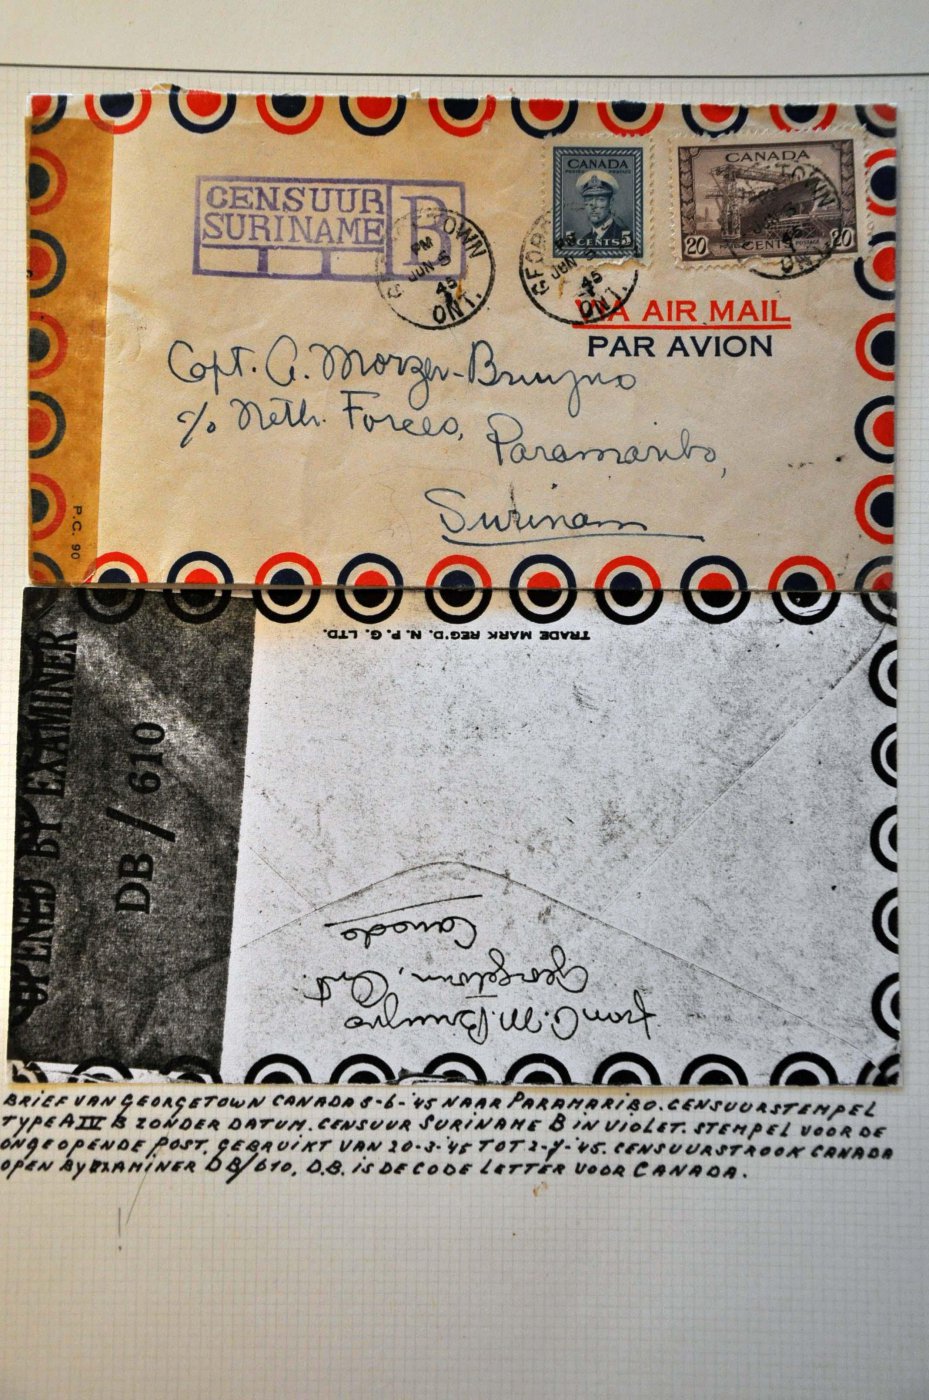 CENSUUR
SURINAME
B
GEORGETOWN
PM
JUN 5
45
ONT.
GEORGETOWN
PM
JUN 5
45
ONT.
CANADA
POSTES POSTAGE
5 CENTS 5
CANADA
20 CENTS 20
POSTAGE
JUN 5
45
ONT.
VIA AIR MAIL
PAR AVION
Capt. A. Morzer-Bruyns
c/o Neth. Forces,
Paramaribo,
Surinam
P.C. 90
OPENED BY EXAMINER
DB/610
TRADE MARK REG'D. N. P. G. LTD.
from C. M. Bruyns
Georgetown, Ont.
Canada
BRIEF VAN GEORGETOWN CANADA 5-6-'45 NAAR PARAMARIBO. CENSUURSTEMPEL
TYPE A IV B ZONDER DATUM. CENSUUR SURINAME B IN VIOLET. STEMPEL VOOR DE
ONGEOPENDE POST. GEBRUIKT VAN 20-3-'45 TOT 2-7-'45. CENSUURSTROOK CANADA
OPEN BY EXAMINER DB/610. D.B. IS DE CODE LETTER VOOR CANADA.